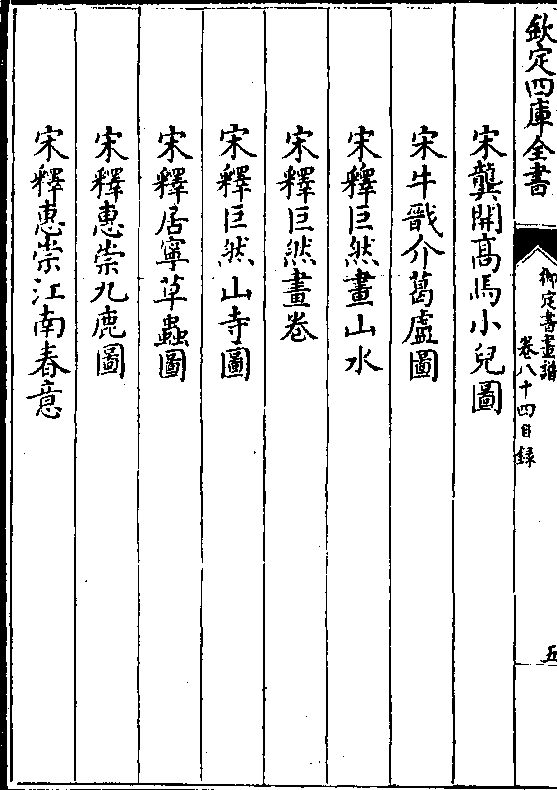 欽定四庫全書
御定書畫譜
卷八十四目録
五
宋龔開髙馬小兒圖
宋牛戩介葛盧圖
宋釋巨然畫山水
宋釋巨然畫卷
宋釋巨然山寺圖
宋釋居寧草蟲圖
宋釋惠崇九鹿圖
宋釋惠崇江南春意